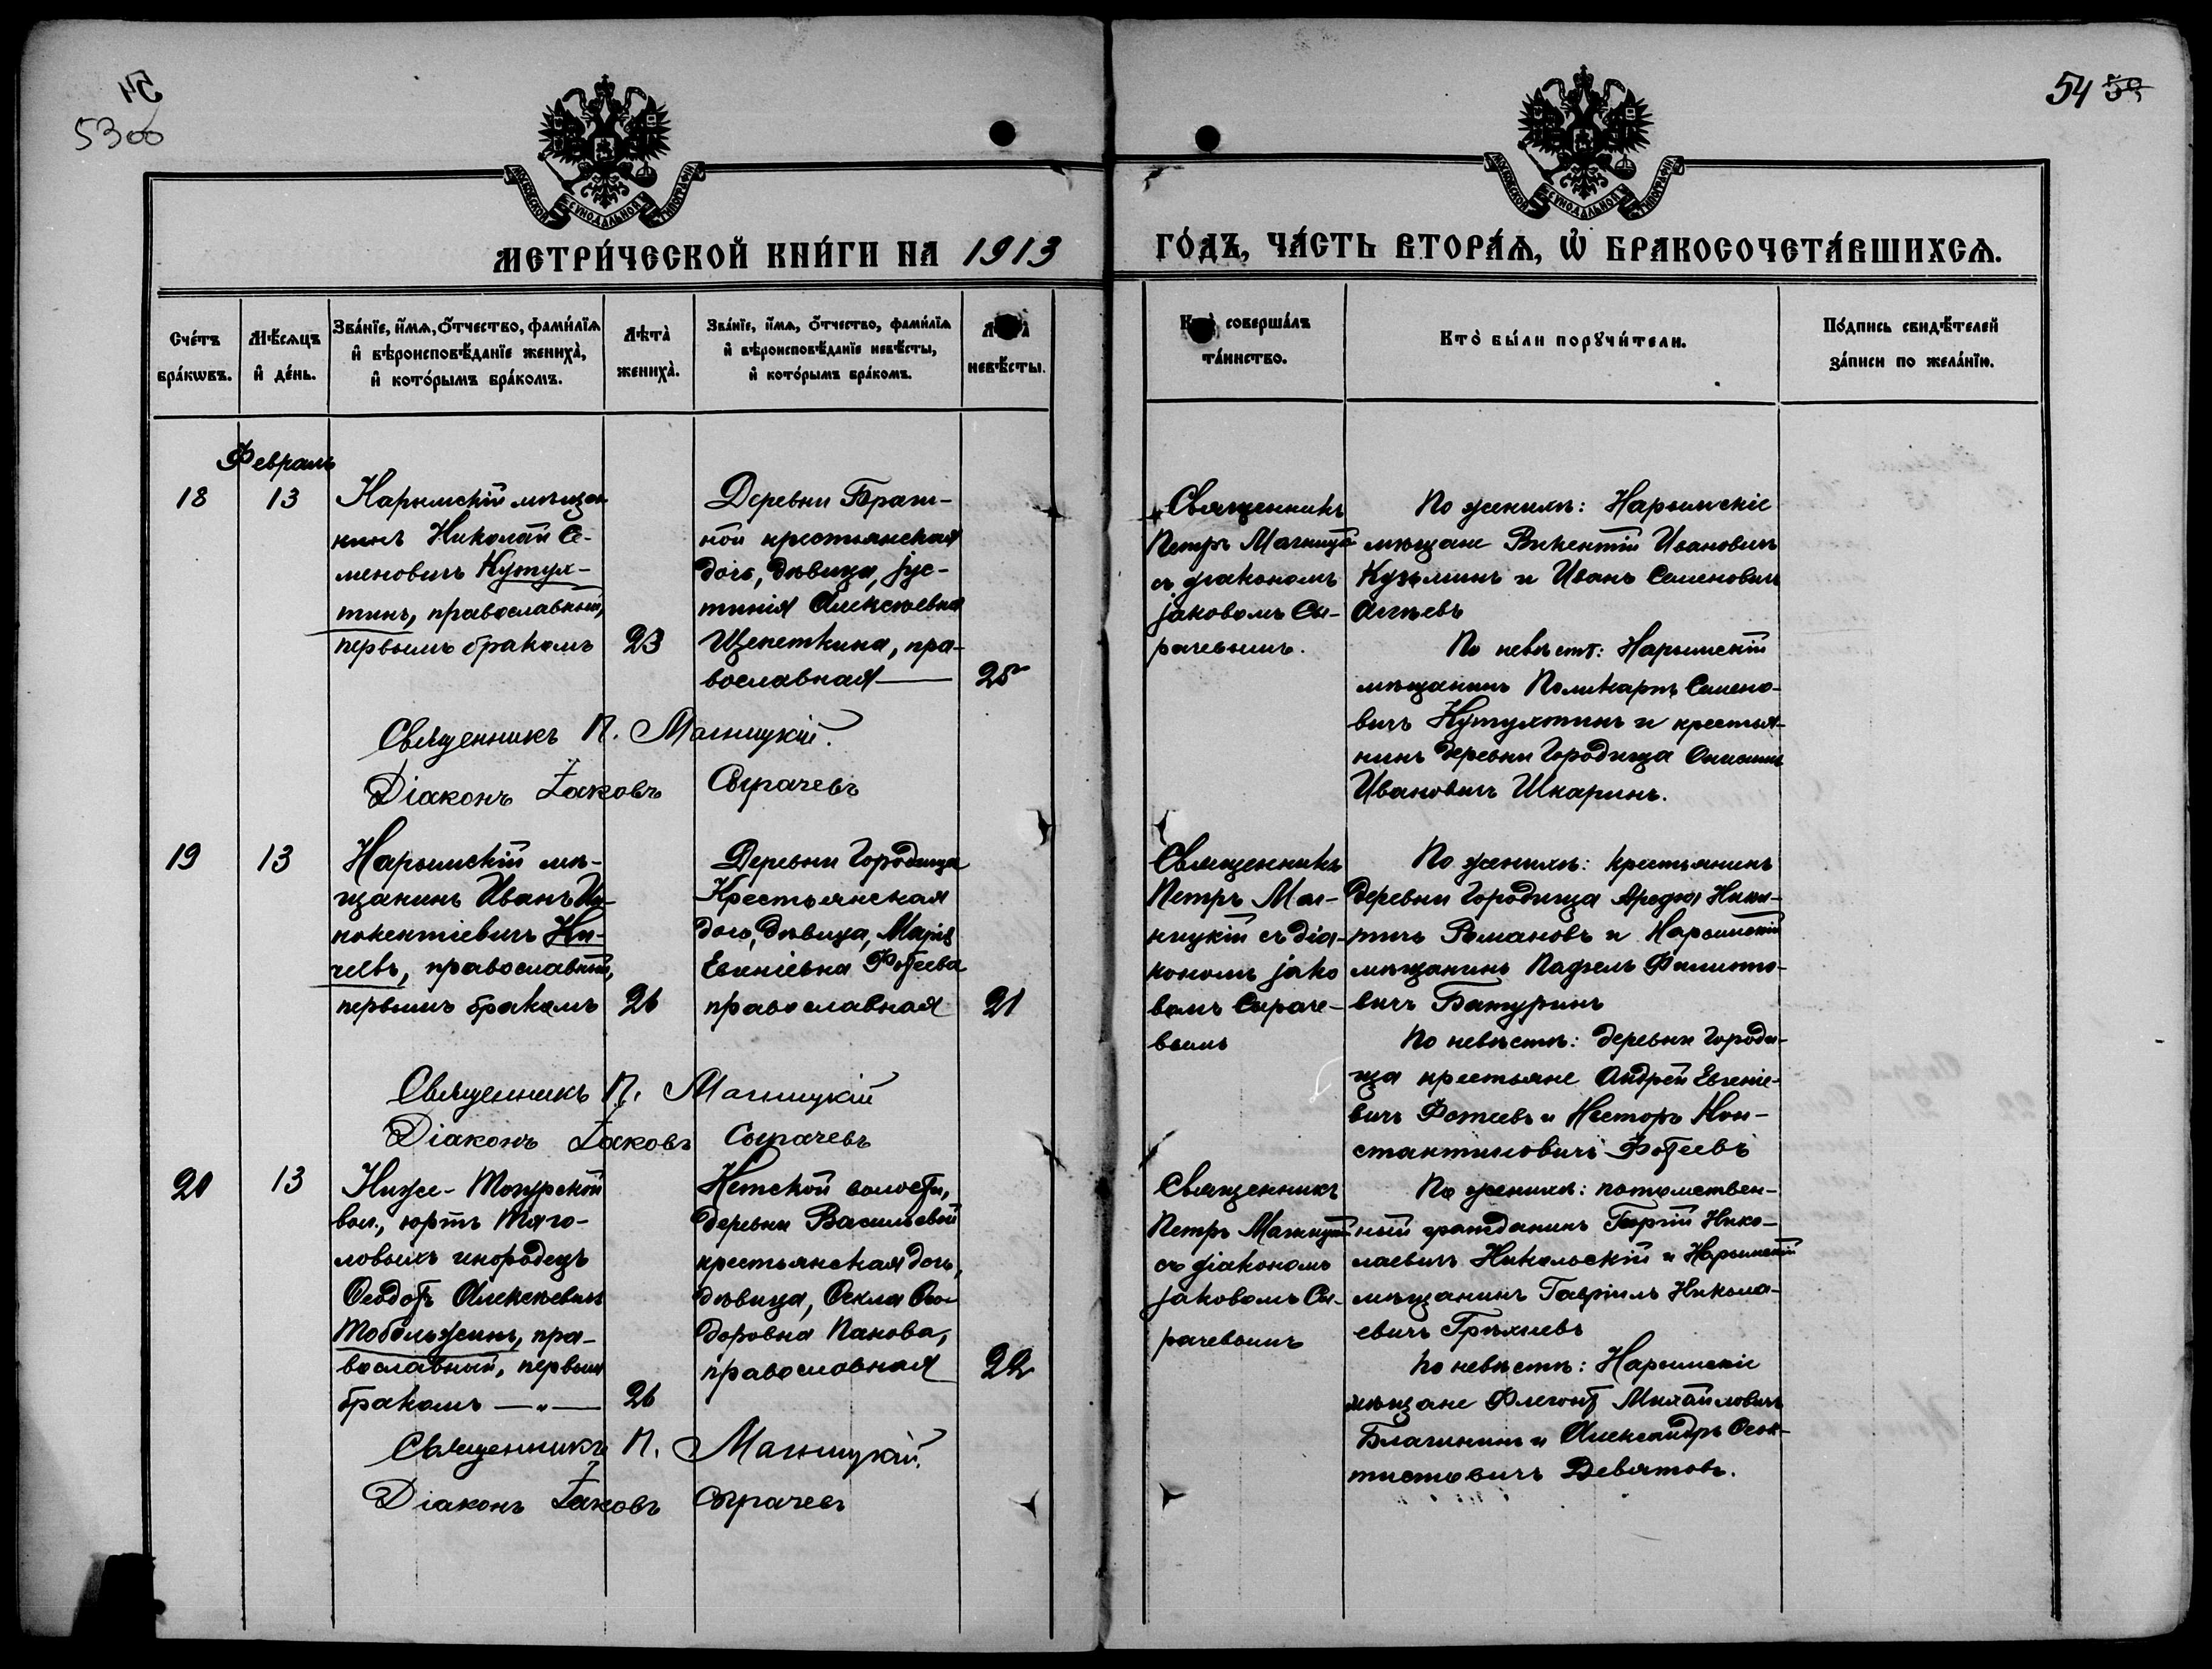 54
5300
54 59
МОСКОВСКОЙ СѴНОДАЛЬНОЙ ТИПОГРАФІИ
МОСКОВСКОЙ СѴНОДАЛЬНОЙ ТИПОГРАФІИ
МЕТРИ́ЧЕСКОЙ КНИ́ГИ НА 1913
ГО́ДЪ, ЧА́СТЬ ВТОРА́Ѧ, Ѡ҆ БРАКОСОЧЕТА́ВШИХСѦ.
Сче́тъ
бра́кѡвъ.
Мѣ́сѧцъ
и҆ де́нь.
Зва́нїе, и҆́мѧ, ѻ҆́тчество, фами́лїѧ
и҆ вѣроисповѣ́данїе жениха̀,
и҆ кото́рымъ бра́комъ.
Лѣта̀
жениха̀.
Зва́нїе, и҆́мѧ, ѻ҆́тчество, фами́лїѧ
и҆ вѣроисповѣ́данїе невѣ́сты,
и҆ кото́рымъ бра́комъ.
невѣ́сты.
соверша́лъ
та́инство.
Кто̀ бы́ли порꙋчи́тели.
По́дпись свидѣ́телей
за́писи по жела́нїю.
Февраль
18
13
Нарымскій мѣща-
нинъ Николай Се-
меновичъ Кутух-
тинъ, православный,
первымъ бракомъ
23
Деревни Браж-
ной крестьянская
дочь, дѣвица, Іус-
тинія Алексѣевна
Щепеткина, пра-
вославная
25
Священникъ
Петръ Магницкій
съ діакономъ
Іаковомъ Сы-
рачевымъ.
По женихѣ: Нарымскіе
мѣщане Викентій Ивановичъ
Кузьминъ и Иванъ Семеновичъ
Аггѣевъ
По невѣстѣ: Нарымскій
мѣщанинъ Поликарпъ Семено-
вичъ Кутухтинъ и крестья-
нинъ деревни Городища Онисимъ
Ивановичъ Шкаринъ.
Священникъ П. Магницкій.
Діаконъ Іаковъ Сырачевъ
19
13
Нарымскій мѣ-
щанинъ Иванъ Ин-
нокентіевичъ Ни-
чевъ, православный,
первымъ бракомъ
26
Деревни Городища
Крестьянская
дочь, дѣвица, Марія
Евгеніевна Фотеева
православная
21
Священникъ
Петръ Маг-
ницкій съ діа-
кономъ Іако
вомъ Сыраче-
вымъ
По женихѣ: крестьянинъ
деревни Городища Ники-
тичъ Романовъ и Нарымскій
мѣщанинъ Павелъ Филиппо-
вичъ Батуринъ
По невѣстѣ: деревни Городи-
ща крестьяне Андрей Евгеніе-
вичъ Фотеевъ и Несторъ Кон-
стантиновичъ Фотеевъ
Священникъ П. Магницкій
Діаконъ Іаковъ Сырачевъ
20
13
Ниже-Тогурской
вол., юртъ Тяго-
ловыхъ инородецъ
Ѳеодотъ Алексѣевичъ
Тобольжинъ, пра-
вославный, первымъ
бракомъ —„—
26
Кетской волости,
деревни Васильевой
крестьянская дочь,
дѣвица, Ѳекла Ѳео-
доровна Панова,
православная
22
Священникъ
Петръ Магницкій
съ діакономъ
Іаковомъ Сы-
рачевымъ
По женихѣ: потомствен-
ный гражданинъ Георгій Нико-
лаевичъ Никольскій и Нарымскій
мѣщанинъ Гавріилъ Никола-
евичъ Грѣхневъ
По невѣстѣ: Нарымскіе
мѣщане Флегонтъ Михайловичъ
Благининъ и Александръ Ѳеок-
тистовичъ Девятовъ.
Священникъ П. Магницкій.
Діаконъ Іаковъ Сырачевъ